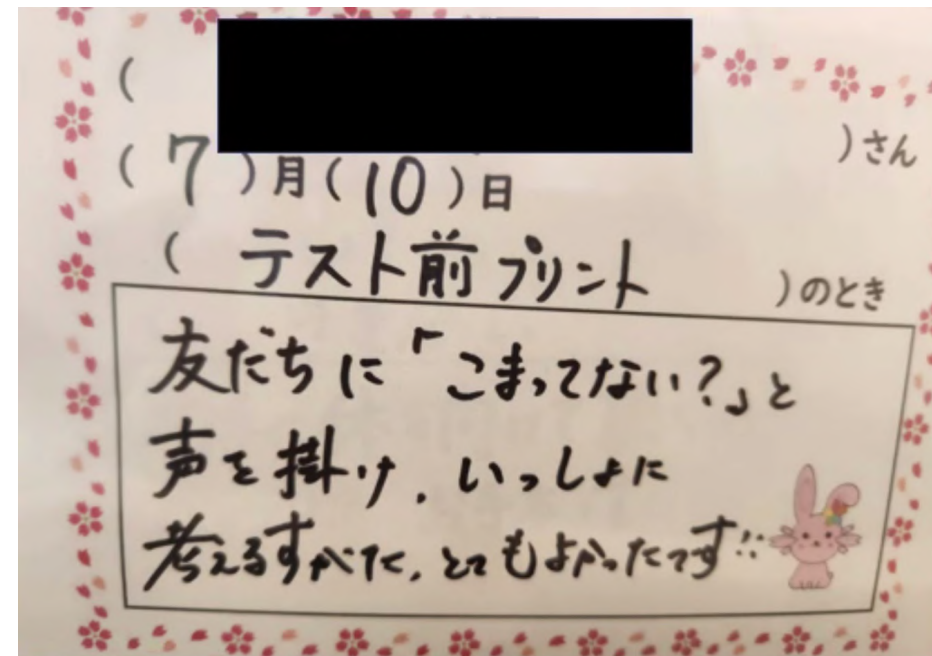 (
)さん
(7)月(10)日
(テスト前プリント)のとき
友だちに「こまってない?」と
声を掛け、いっしょに
考えるすがた、とてもよかったです!!